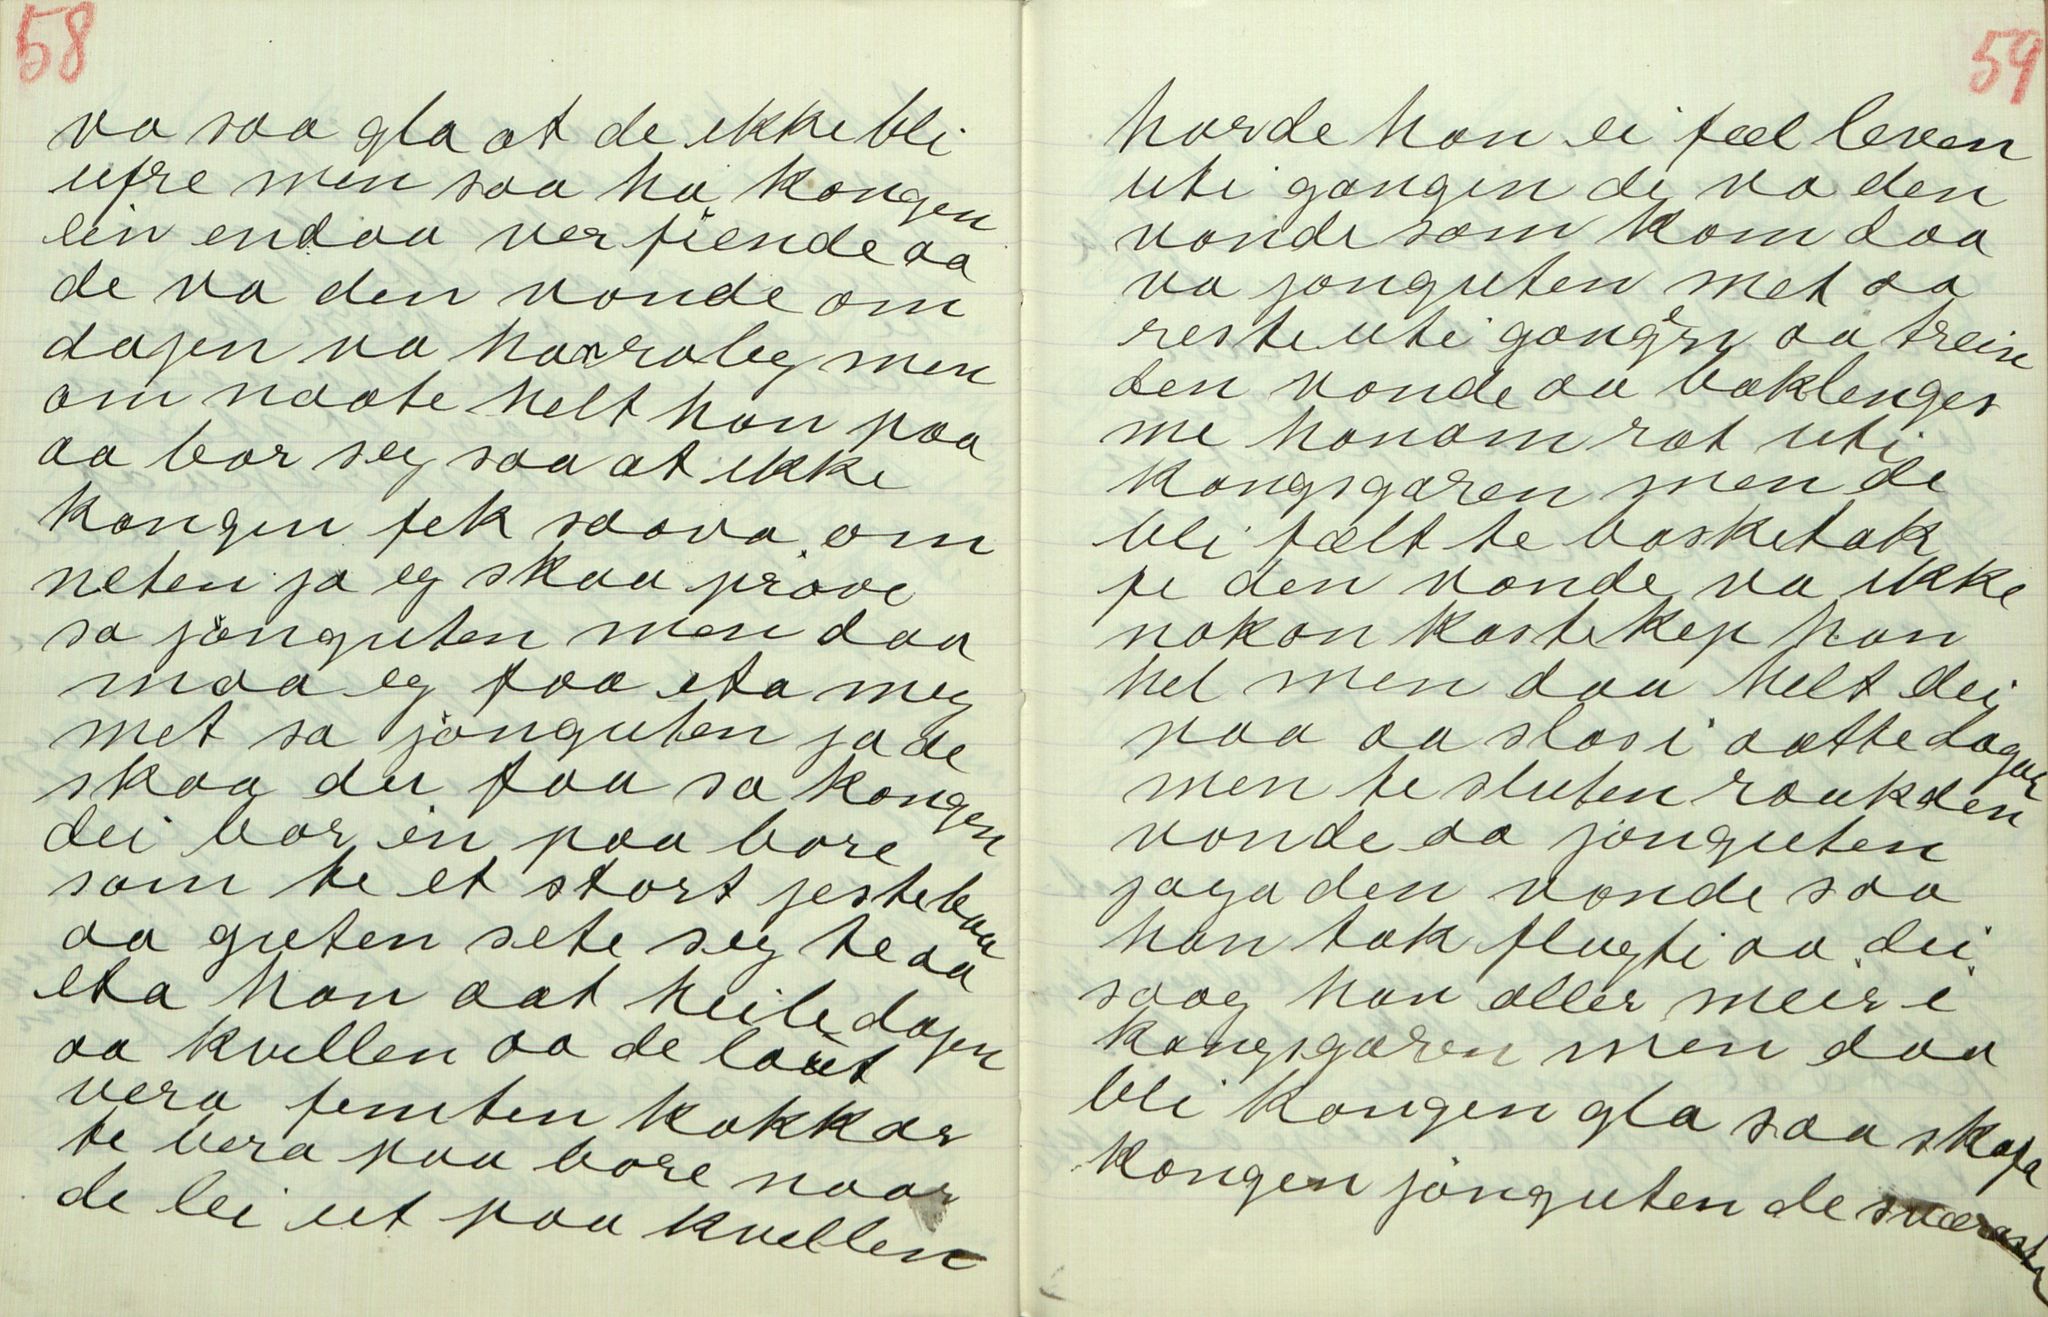 58
va saa gla at de ikke bli
ufre men saa ha kongen
ein endaa ver fiende aa
de va den vonde om
dagen va han roleg men
om naate helt han paa
aa bar seg saa at ikke
kongen fek saava om
neten ja eg skaa prøve
sa jønguten men daa
maa eg faa eta meg
met sa jønguten ja de
skaa du faa sa kongen
dei bar in paa bore
som te et stort jestebaa
aa guten sete seg te aa
eta han aat heile dagen
aa kvellen aa de laut
vera femten kakkar
te bera paa bore naar
de lei ut paa kvellen
59
horde han ei fæl leven
uti gangen de va den
vonde som kom daa
va jonguten met aa
reste uti gangen aa trein
den vonde aa baklenges
me honom rat uti
kongsgaren men de
bli fælt te basketak
fe den vonde va ikke
nokon kastekep han
hel men daa helt dei
paa aa slas i aatte dagar
men te sluten rauk den
vonde aa jonguten
jaga den vonde saa
han tok flugti aa dei
saag han aller meir i
kongsgaren men daa
bli kongen gla saa skafa
kongen jønguten de sværaste